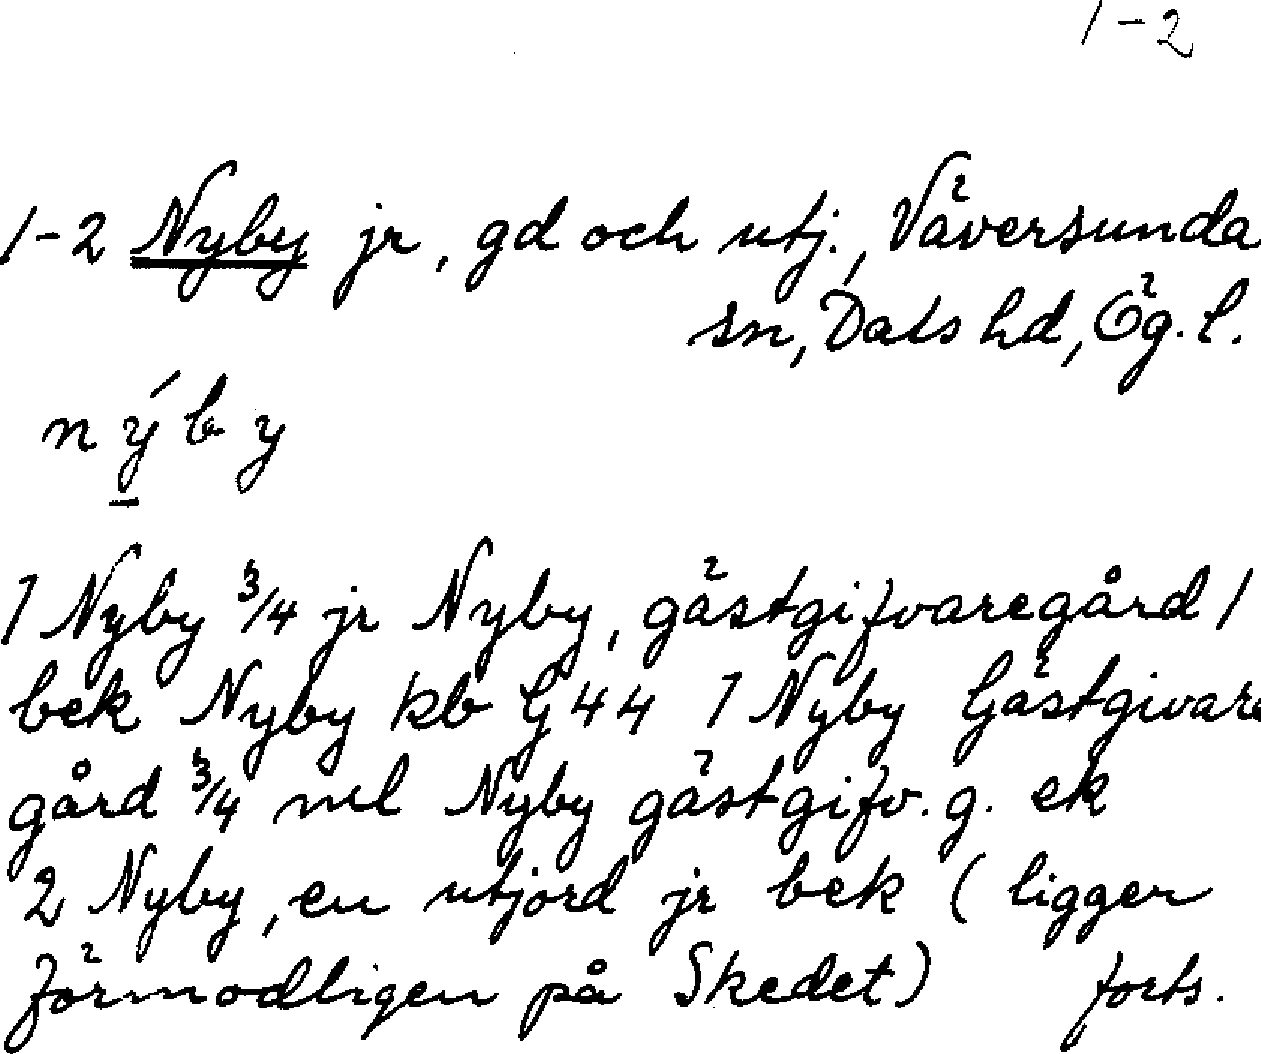 1-2
1-2 Nyby jr, gd och utj., Väversunda
sn, Dals hd, Ög. l.
n ý b y
1 Nyby 3/4 jr Nyby, gästgifvaregård 1
bek Nyby kb G 44 1 Nyby Gästgivare
gård 3/4 ml Nyby gästgifv. g. ek
2 Nyby, en utjord jr bek (ligger
förmodligen på Skedet) forts.